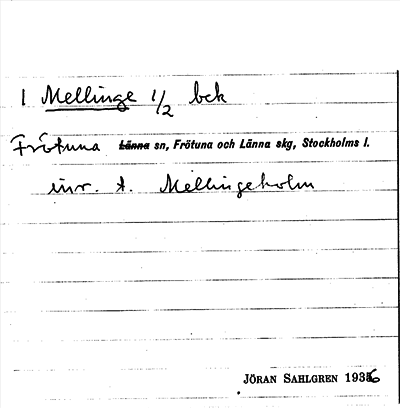 1 Mellinge 1/2 bek
Frötuna Länna sn, Frötuna och Länna skg, Stockholms l.
inr. t. Mellingeholm
JÖRAN SAHLGREN 1936